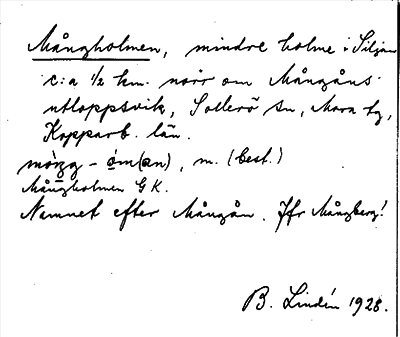 Mångholmen, mindre holme i Siljan
c:a 1/2 km. norr om Mångåns
utloppsvik, Sollerö sn, Mora tg,
Kopparb. län.
möŋg-óm(an), m. (best.)
Mångholmen GK.
Namnet efter Mångån. Jfr Mångberg!
B. Lindén 1928.